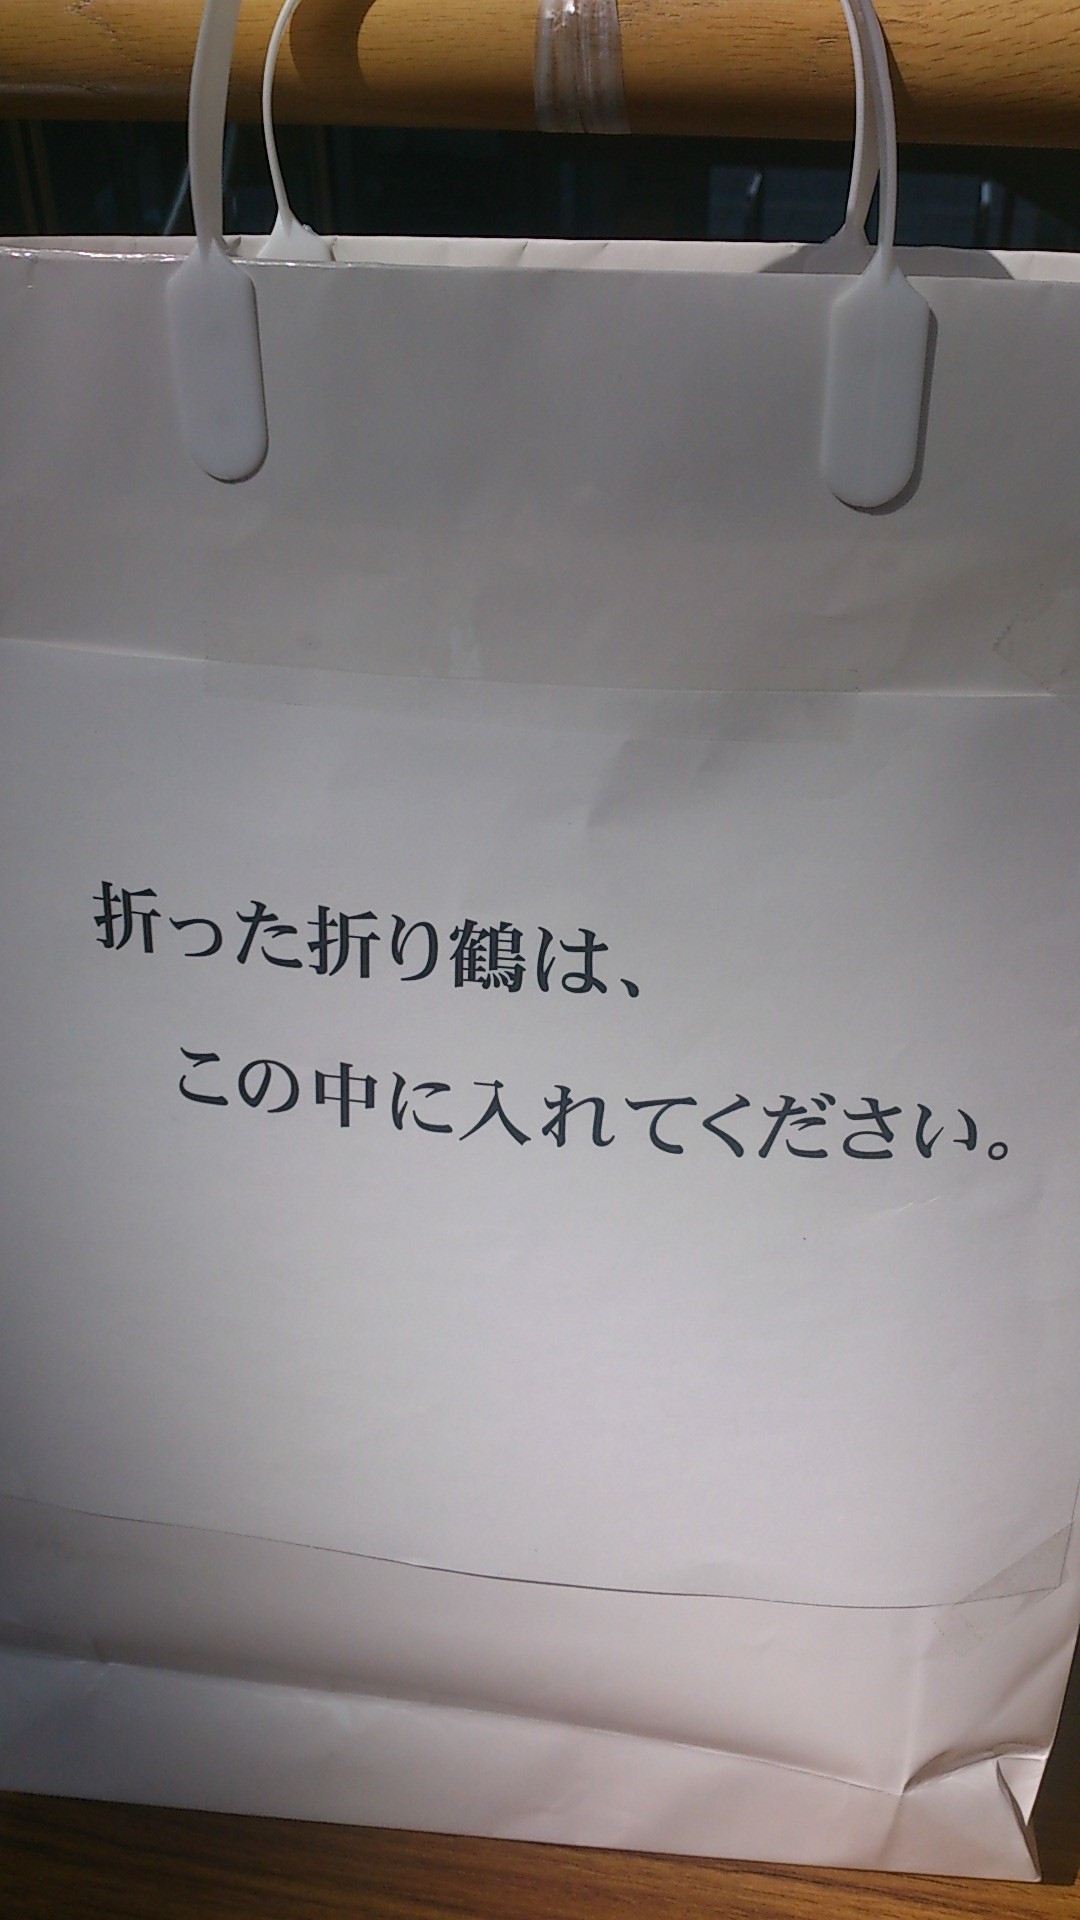 折った折り鶴は、
この中に入れてください。